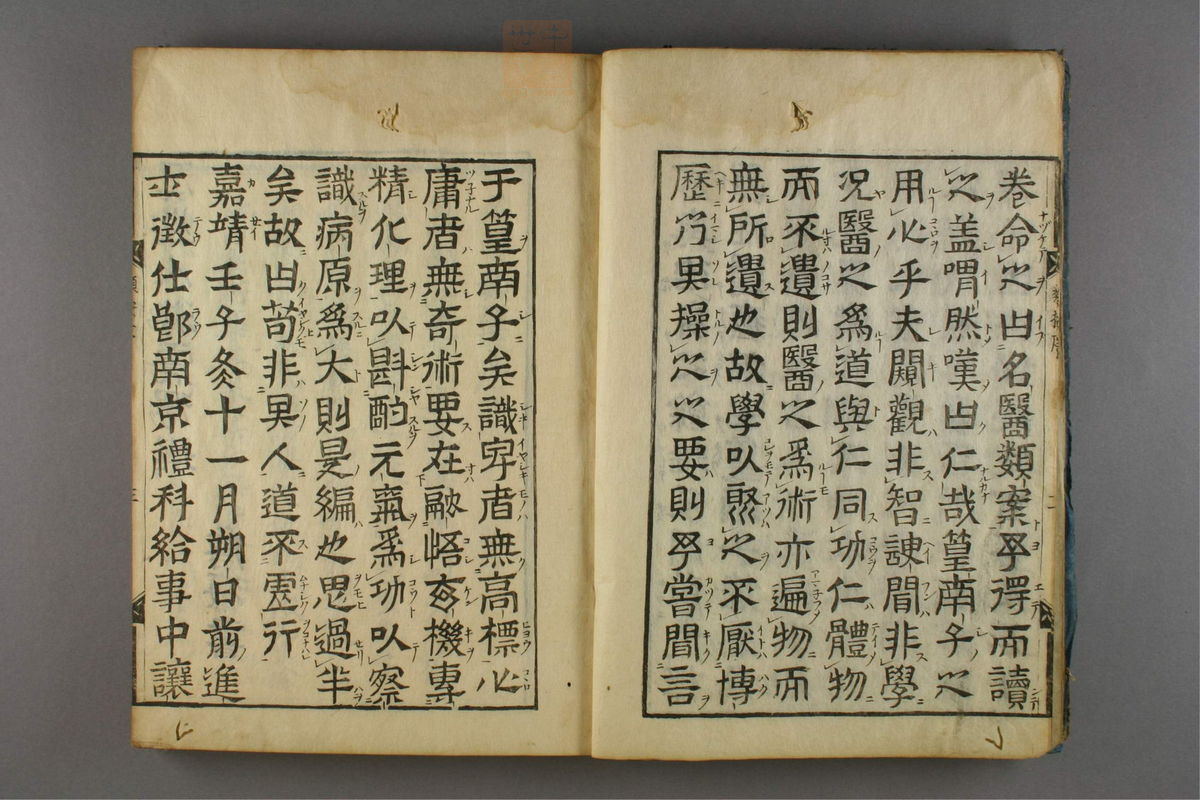 卷命之曰名醫類案予得而讀
之蓋喟然嘆曰仁哉篁南子之
用心乎夫闚觀非智諫聞非學
況醫之爲道與仁同功仁體物
而不遺則醫之爲術亦遍物而
無所遺也故學以聚之不厭博
歷以乃其操之之要則予嘗聞言
于篁南子矣識字者無高標心
庸者無奇術要在融悟玄機專
精化理以斟酌元氣爲功以察
識病原爲大則是編也思過半
矣故曰苟非其人道不虛行
嘉靖壬子冬十一月朔日前進
士徵仕郎南京禮科給事中讓